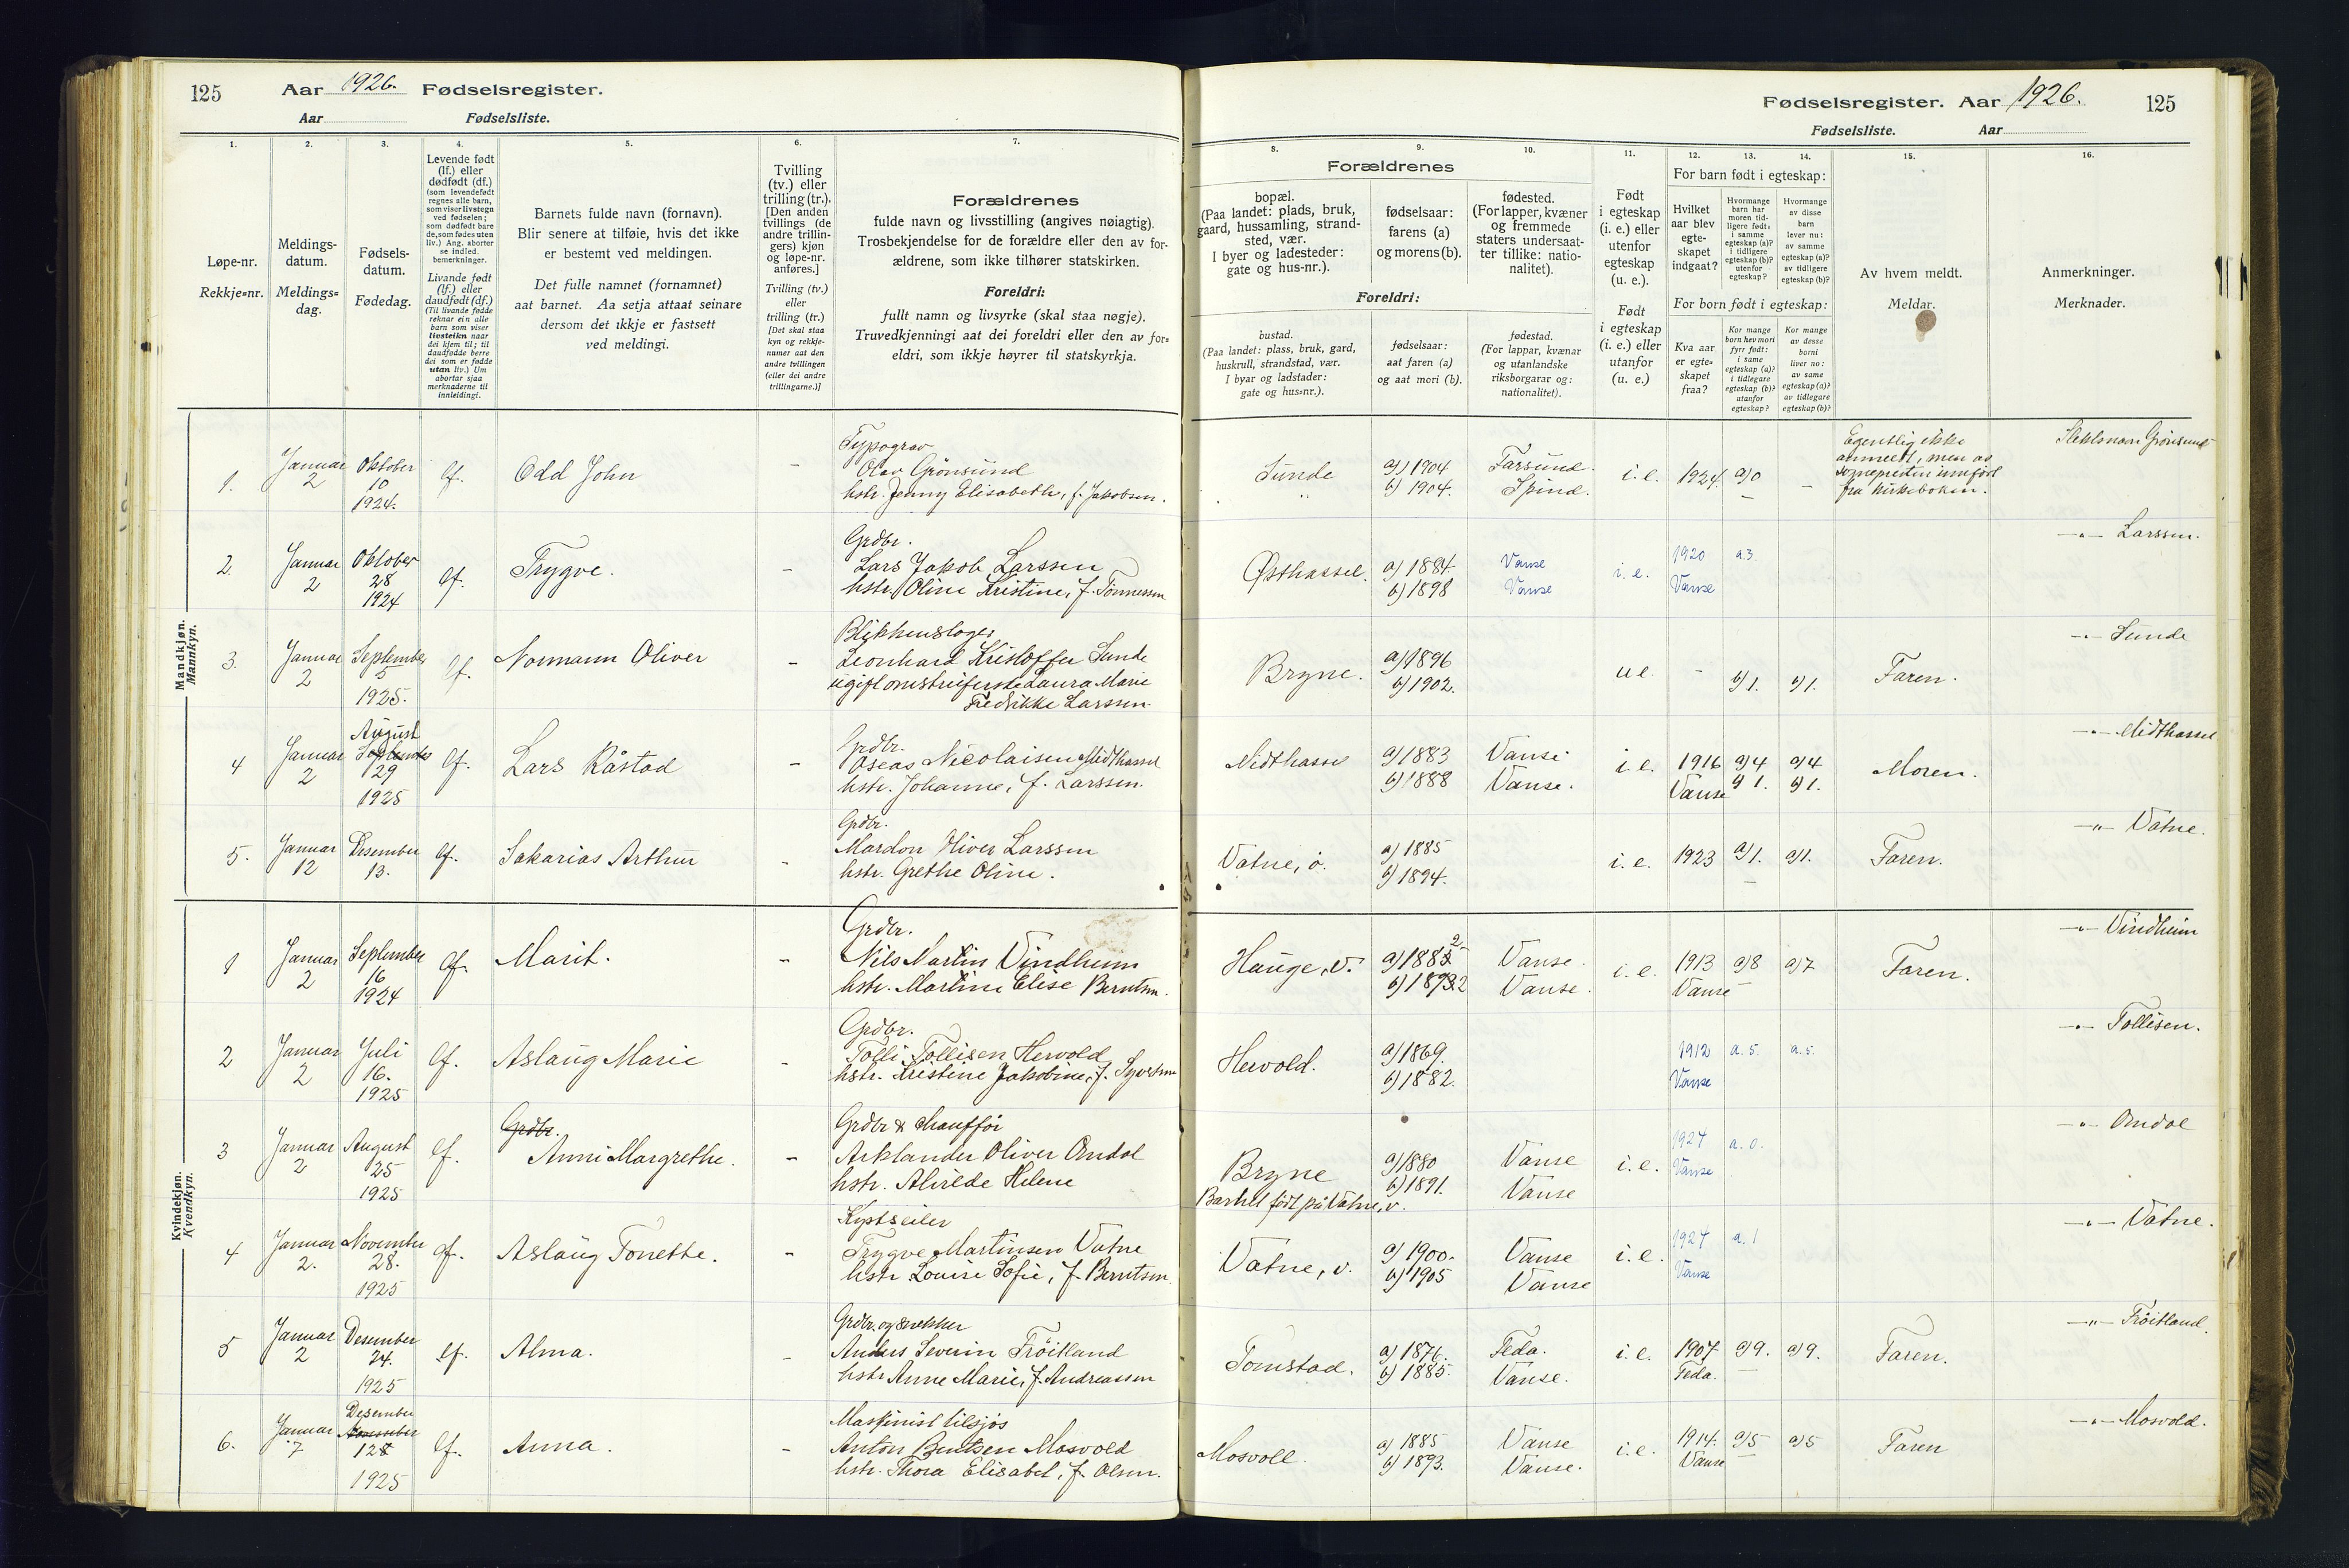 125 Aar 1926. Fødselsregister.
Aar Fødselsliste.
Fødselsregister. Aar 1926. 125
Fødselsliste. Aar
1. 2. 3. 4. 5. 6. 7.
Løpe-nr.
Rekkje=nr.
Meldings-
datum.
Meldings=
dag.
Fødsels-
datum.
Fødedag.
Levende født
(lf.) eller
dødfødt (df.)
(som levendefødt
regnes alle barn,
som viser livstegn
ved fødselen;
som dødfødt bare
de, som fødes uten
liv.) Ang. aborter
se indled.
bemerkninger.
Livande født
(lf.) eller
daudfødt (df.)
(Til livande fødde
reknar ein alle
barn som viser
livsteikn naar
dei kjem til; til
daudfødde berre
dei som er fødde
utan liv.) Um
abortar sjaa
merknaderne til
innleidingi.
Barnets fulde navn (fornavn).
Blir senere at tilføie, hvis det ikke
er bestemt ved meldingen.
Det fulle namnet (fornamnet)
aat barnet. Aa setja attaat seinare
dersom det ikkje er fastsett
ved meldingi.
Tvilling
(tv.) eller
trilling (tr.).
[Den anden
tvillings (de
andre trillin-
gers) kjøn
og løpe-nr.
anføres.]
Tvilling (tv.)
eller
trilling (tr.)
[Det skal staa
kyn og rekkje-
numer aat den
andre tvillingen
(eller dei andre
trillingarne.)]
Forældrenes
fulde navn og livsstilling (angives nøiagtig).
Trosbekjendelse for de forældre eller den av for-
ældrene, som ikke tilhører statskirken.
Foreldri:
fullt namn og livsyrke (skal staa nøgje).
Truvedkjenningi aat dei foreldri eller den av for=
eldri, som ikkje høyrer til statskyrkja.
8. 9. 10. 11. 12. 13. 14. 15. 16.
Forældrenes
bopæl.
(Paa landet: plads, bruk,
gaard, hussamling, strand-
sted, vær.
I byer og ladesteder:
gate og hus-nr.).
fødselsaar:
farens (a)
og morens (b).
fødested.
(For lapper, kvæner
og fremmede
staters undersaat-
ter tillike: natio-
nalitet).
Foreldri:
bustad.
(Paa landet: plass, bruk, gard,
huskrull, strandstad, vær.
I byar og ladstader:
gate og hus=nr.).
fødselsaar:
aat faren (a)
og aat mori (b).
fødestad.
(For lappar, kvænar
og utanlandske
riksborgarar og:
nationalitet).
Født
i egteskap
(i. e.) eller
utenfor
egteskap
(u. e.).
Født
i egteskap
(i. e.) eller
utanfor
(u. e.)
For barn født i egteskap:
Hvilket
aar blev
egte-
skapet
indgaat?
Hvormange
barn har
moren tid-
ligere født:
i samme
egteskap (a)?
i tidligere
egteskap (b)?
utenfor
egteskap?
Hvormange
av disse
barn
lever nu:
av samme
egteskap (a)?
av tidligere
egteskap (b)?
For born født i egteskap:
Kva aar
er egte=
skapet
fraa?
Kor mange
born hev mori
fyrr født:
i same
egteskap (a)?
i tidlegare
egteskap (b)?
utanfor
egteskap?
Kor mange
av desse
borni
liver no:
av same
egteskap (a)?
av tidlegare
egteskap (b)?
Av hvem meldt.
Meldar.
Anmerkninger.
Merknader.
Mandkjøn.
Mannkyn.
1. Januar 2 Oktober 10 1924. lf. Odd John -
Typograv
Olav Grönsund
hstr. Jenny Elisabeth, f. Jakobsen.
Sunde a) 1904 b) 1904. Farsund. Spind. i. e. 1924. a) 0 -
Egentlig ikke
anmeldt, men av
sognepresten innført
fra kirkeboken.
Slektsnavn Grönsund
2. Januar 2 Oktober 28 1924 lf. Trygve. -
Grdbr.
Lars Jakob Larssen
hstr. Oline Kristine, f. Tönnessen
Østhassel. a) 1884. b) 1898 Vanse Vanse i. e. 1920 Vanse a. 3 -"- Larssen.
3. Januar 2 September 5 1925. lf. Normann Oliver -
Blikkenslager
Leonhard Kristoffer Sunde
Laura Marie
Fredrikke Larssen.
Bryne. a) 1896 b) 1902. u e. - b) 1. b) 1. Faren. -"- Sunde
4 Januar 2 August September 29 1925 lf. Lars Råstad -
Grdbr.
Oseas Nicolaisen Midthassel
hstr. Johanne, f. Larssen.
Midthassel a) 1883 b) 1888 Vanse Vanse. i. e. 1916 Vanse a) 4 b) 1. a) 4 b) 1. Moren. -"- Midthassel
5. Januar 12 Desember 13. lf. Sakarias Arthur -
Grdbr.
Mardon Oliver Larssen
hstr. Grethe Oline.
Vatne, ö. a) 1885 b) 1894. i. e. 1923 a) 1. a) 1. Faren. -"- Vatne.
Kvindekjøn.
Kvendkyn.
1 Januar 2 September 16 1924 lf. Marit. -
Grdbr.
Nils Martin Vindheim
hstr. Martine Elise Berntsen.
Hauge, v. Vanse. Vanse. i. e. 1913 Vanse a) 8 a) 7 Faren. -"- Vindheim
2 Januar 2 Juli 16. 1925 lf. Aslaug Marie -
Grdbr.
Tolli Tollisen Hervold
hstr. Kristine Jakobine, f.
Hervold. a) 1869. b) 1882. 1912 Vanse a. 5. a. 5. -"- Tollisen.
3 Januar 2 August 25 1925 lf. Grdbr. Anni Margrethe. -
Grdbr & Chaufför
Arklander Oliver Omdal
hstr. Alvilde Helene
Bryne a) 1880 b) 1891. Vanse Vanse i. e. 1924 Vanse a. 0. -"- Omdal
Barnet født på Vatne, v.
4 Januar 2. November 28. 1925 lf. Aslaug Tonette. -
Kystseiler
Trygve Martinsen Vatne
hstr Louise Sofie, f. Berntsen.
Vatne, v. a) 1900. b) 1905 Vanse Vanse i. e. 1924 Vanse a. 1 -"- Vatne.
5 Januar 2 Desember 24. 1925 lf. Alma. -
Grdbr. og snekker
Anders Severin Fröitland
hstr Anne Marie, f. Andreassen
Tomstad. a) 1876. b) 1885. Feda. Vanse. i. e. 1907 Feda. a) 9. a) 9. Faren. -"- Fröitland.
6. Januar 7 Desember November 1925 lf. Anna. -
Maskinist tilsjøs
Anton Berntsen Mosvold
hstr. Thora Elisabet, f. Olsen.
Mosvoll. a) 1885 b) 1893. Vanse Vanse. i. e. 1914. Vanse a) 5 a) 5 Faren -"- Mosvold.